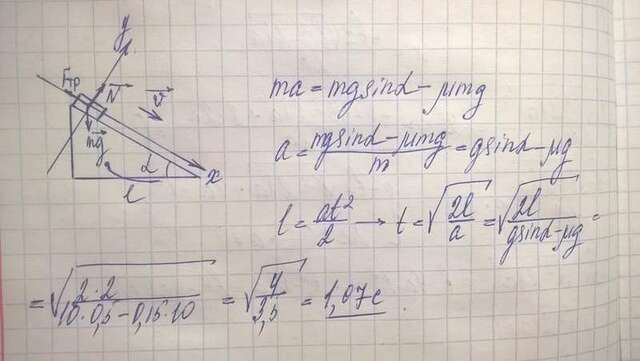 y
Fтр
N
v
mg
α
x
l
ma = mgsinα - μmg
a = (mgsinα - μmg)/m = gsinα - μg
l = at²/2 → t = √(2l/a) = √(2l/(gsinα - μg)) =
= √(2·2/(10·0,5 - 0,15·10)) = √(4/3,5) = 1,07с.